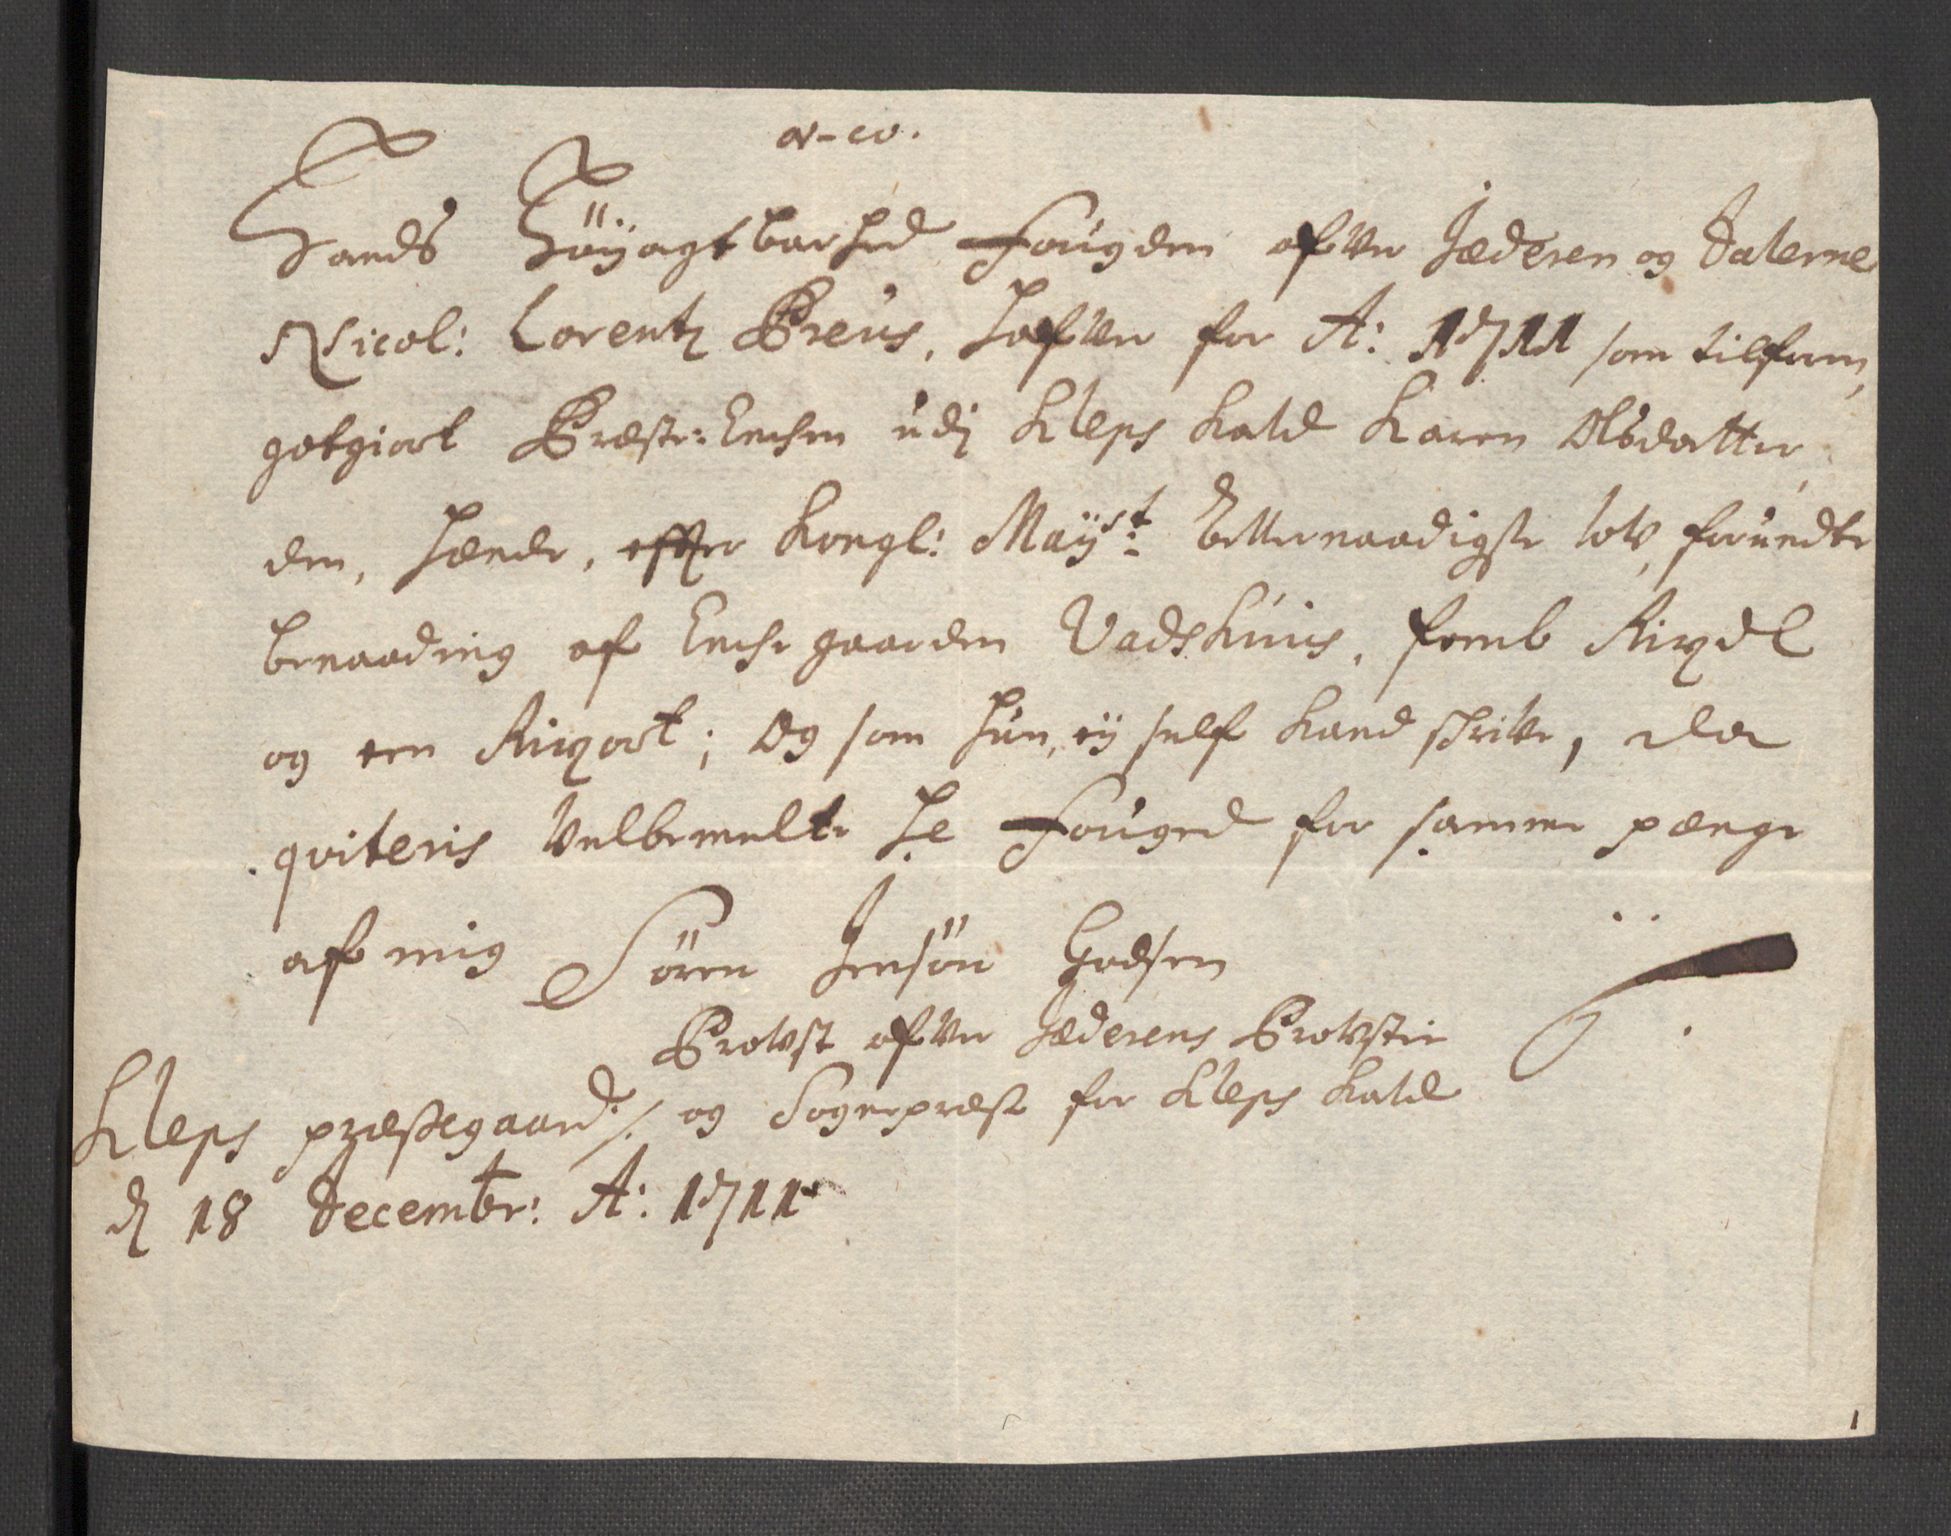 Hands Höÿagtbarhed Fougden ofver Jæderen og Dalerne
Nicol: Lorentz Preus, hafver for A: 1711 som tilforn,
gotgiort Præste-Enchen udj Kleps Kald Karen Olsdatter,
den, hende, effter Kongl: Maÿst: allernaadigste lov, forundte
benaading af Enche gaarden Vadshuus, femb Rixdl
og een Rixort; Og som hun, eÿ self kand skrive, da
qviteris Velbemelte Hr Fouged for samme penge
af mig Sören Jensön Godsen
Provst ofver Jæderens Provstie
og Sogneprest for Kleps Kald
Kleps præstegaard /.
d 18 Decembr: A: 1711
1